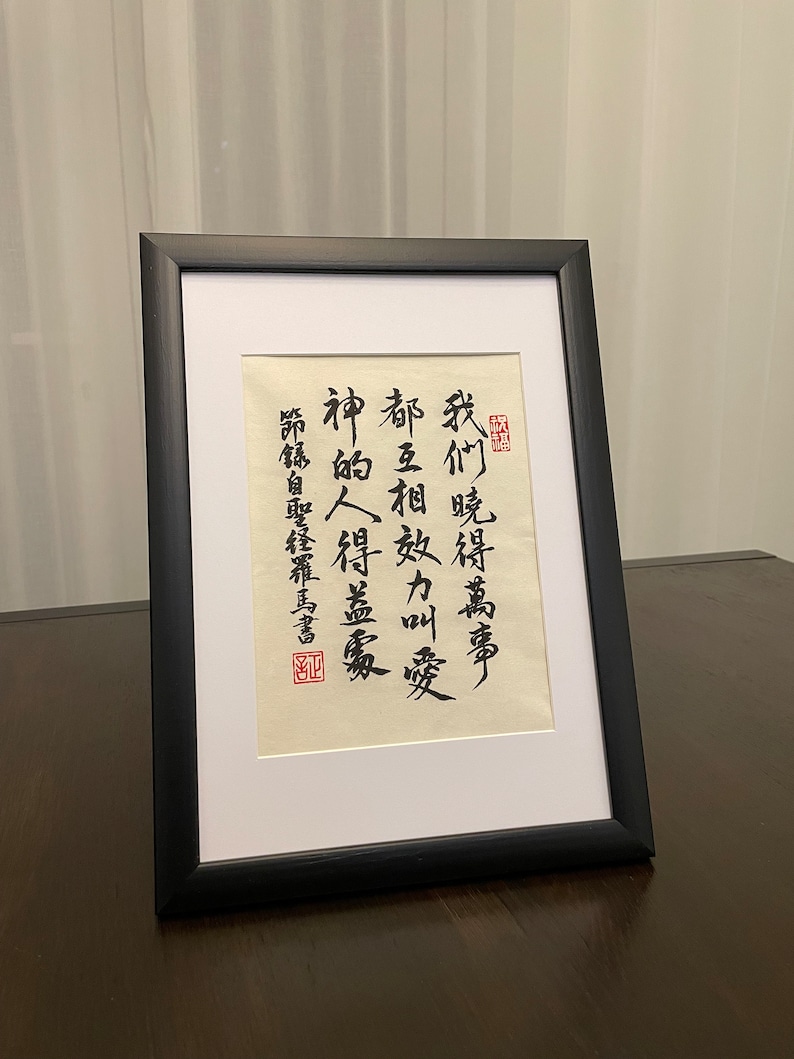 祝福
我們曉得萬事
都互相效力叫愛
神的人得益處
節錄自聖経羅馬書